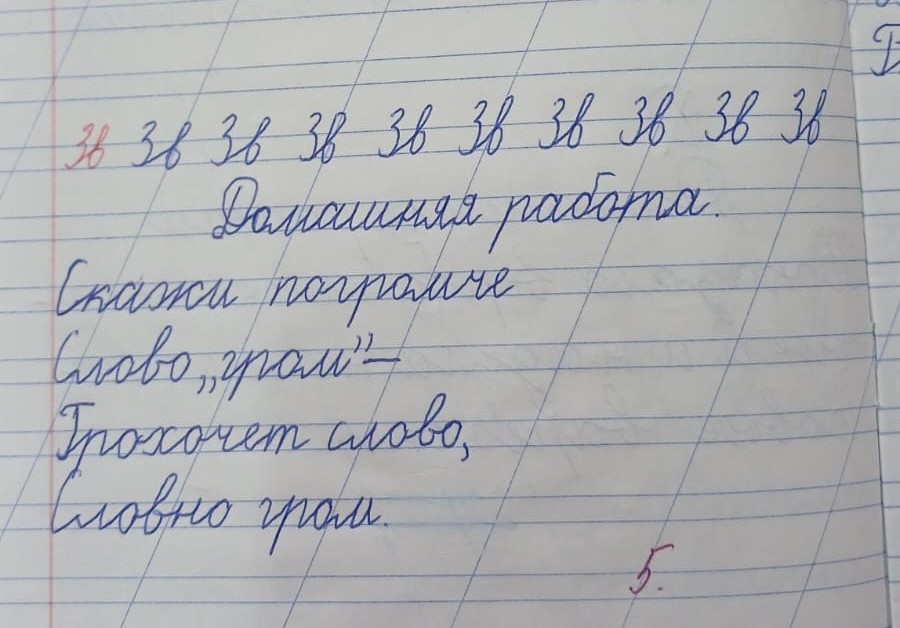 Зв Зв Зв Зв Зв Зв Зв Зв Зв Зв
Домашняя работа.
Скажи погромче
Слово „гром”—
Грохочет слово,
Словно гром.
5.